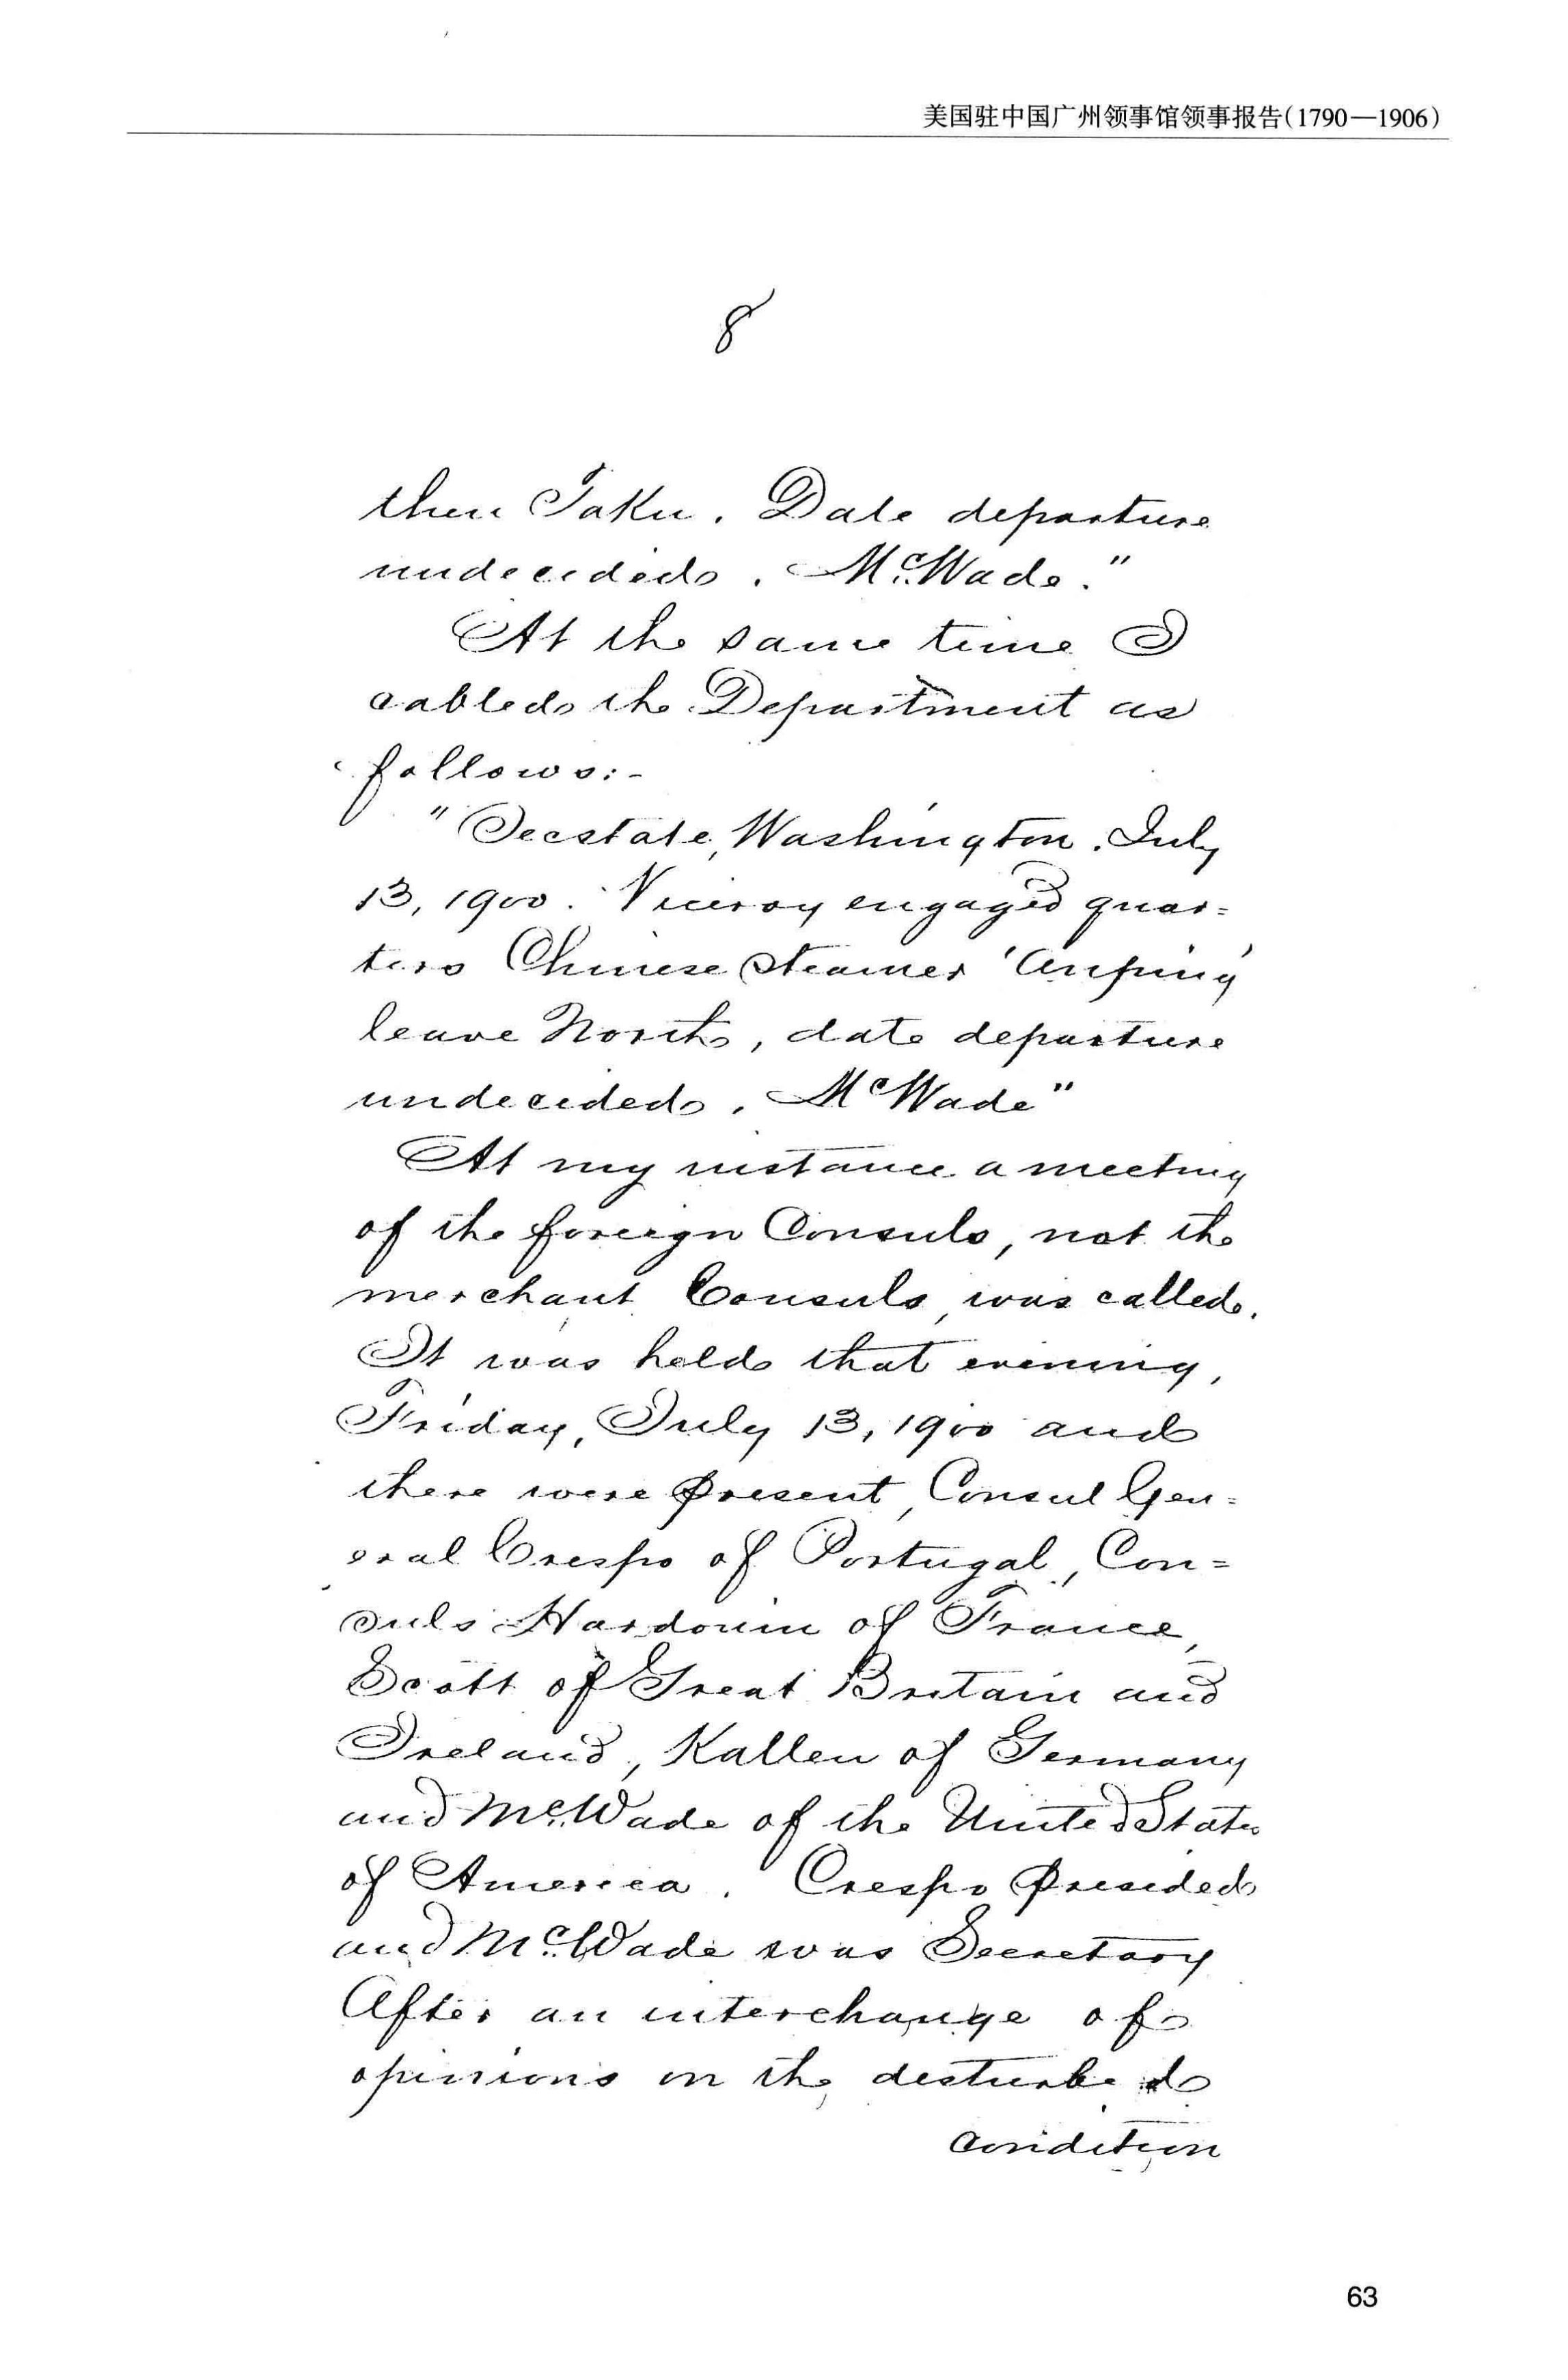 美国驻中国广州领事馆领事报告(1790—1906)
8
then Taku. Date departure
undecided. McWade."
At the same time I
cabled the Department as
follows:-
"Secstate, Washington. July
13, 1900. Viceroy engaged quar=
ters Chinese Steamer 'Anping'
leave North, date departure
undecided. McWade"
At my instance a meeting
of the foreign Consuls, not the
merchant Consuls, was called.
It was held that evening,
Friday, July 13, 1900 and
there were present, Consul Gen=
eral Crespo of Portugal, Con=
suls Hardouin of France,
Scott of Great Britain and
Ireland, Kallen of Germany
and McWade of the United States
of America. Crespo presided
and McWade was Secretary
After an interchange of
opinions on the disturbed
condition
63